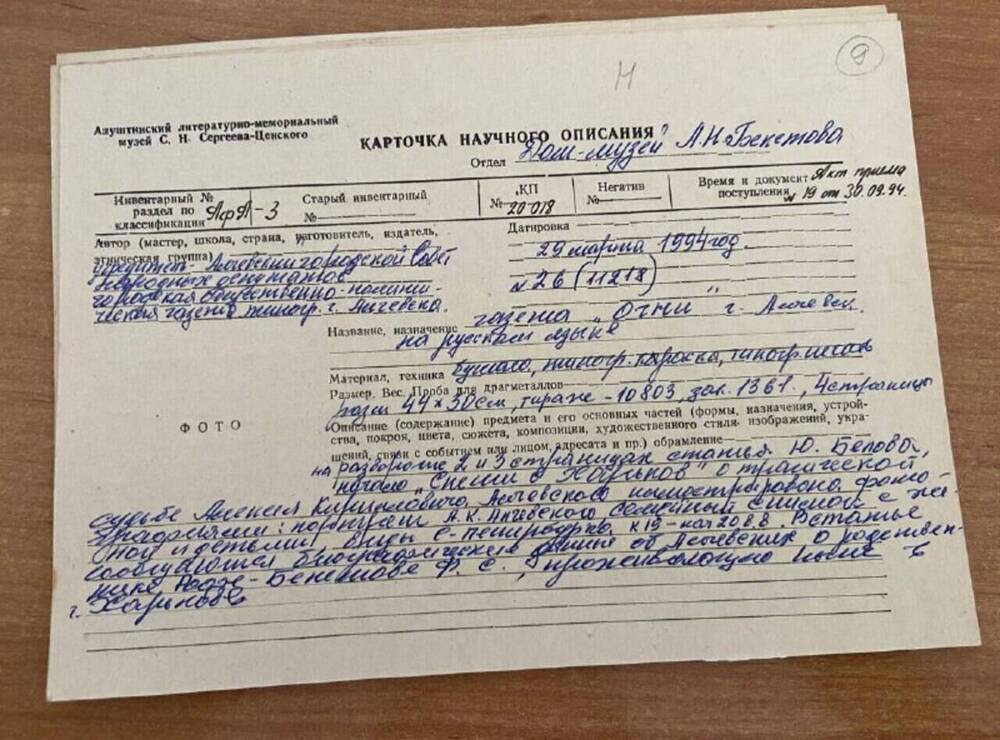 Н
9
Алуштинский литературно-мемориальный
музей С. Н. Сергеева-Ценского
КАРТОЧКА НАУЧНОГО ОПИСАНИЯ
Отдел Дом-музей А.Н. Бекетова
Инвентарный №
раздел по
классификации АфА-3
Старый инвентарный
№
КП
№ 20-018
Негатив
№
Время и документ Акт приема
поступления №19 от 30.09.94.
Автор (мастер, школа, страна, изготовитель, издатель,
этническая группа)
учредитель - Алчевский городской Совет
народных депутатов
городская общественно-полити-
ческая газета типогр. г. Алчевска.
Датировка
29 марта 1994 год
№ 26 (11218)
газета „Огни" г. Алчевск.
Название, назначение
на русском языке
Материал, техника бумага, типогр. краска, типогр. печать
Размер, Вес. Проба для драгметаллов
разм 44 × 30 см, тираж - 10803, зак. 1361, 4 страницы
ФОТО
Описание (содержание) предмета и его основных частей (формы, назначения, устрой-
ства, покроя, цвета, сюжета, композиции, художественного стиля изображений, укра-
шений, связи с событием или лицом, адресата и пр.) обрамление
на развороте 2 и 3 страницах статья Ю. Белова,
начало о трагической
судьбе Алексея Кирилловича Алчевского иллюстрирована фото-
графиями: портрет А.К. Алчевского семейный снимок с же-
ной и детьми, виды С-Петербурга к 19 - нач 20 в.в. В статье
сообщаются биографические данные об Алчевских о родствен-
нике Ф. С., проживающего ныне в
г. Харькове